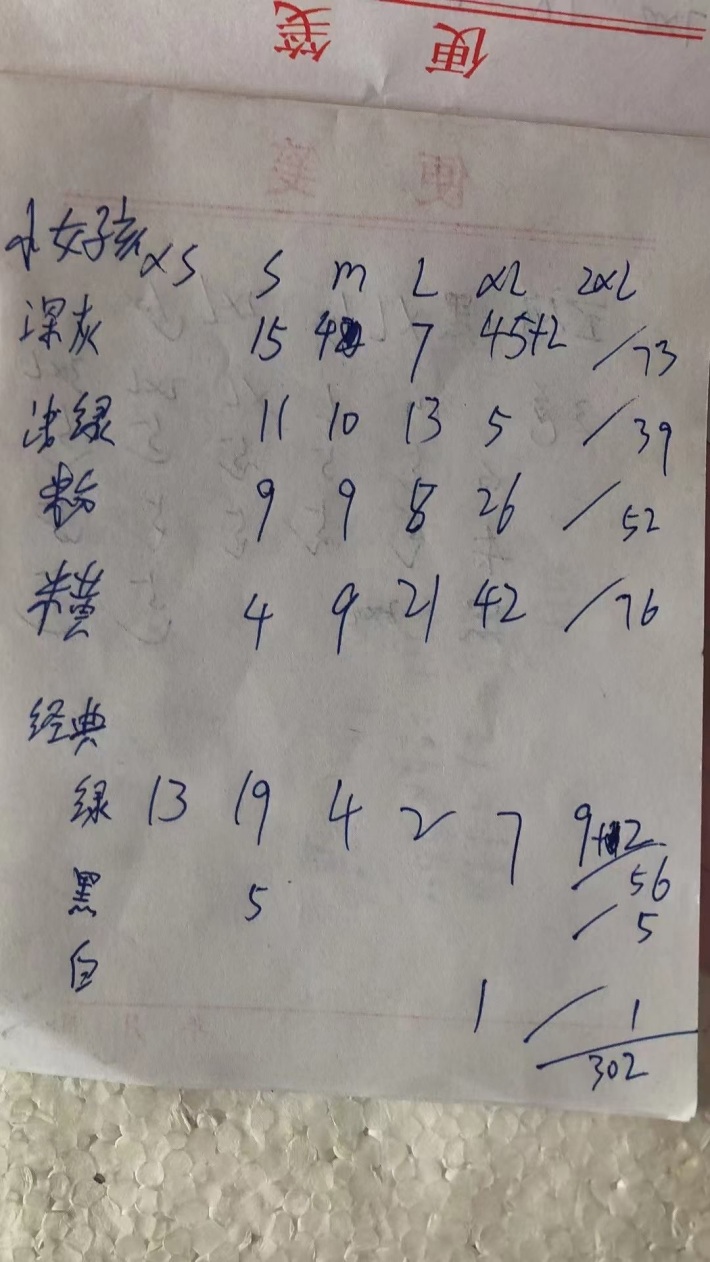 便笺
便笺
小女孩 XS S M L XL 2XL
深灰 15 4 7 45+2 /73
绿 11 10 13 5 /39
粉 9 9 8 26 /52
米黄 4 9 21 42 /76
经典
绿 13 19 4 2 7 9+2
/56
黑 5 /5
白 1 /1
302